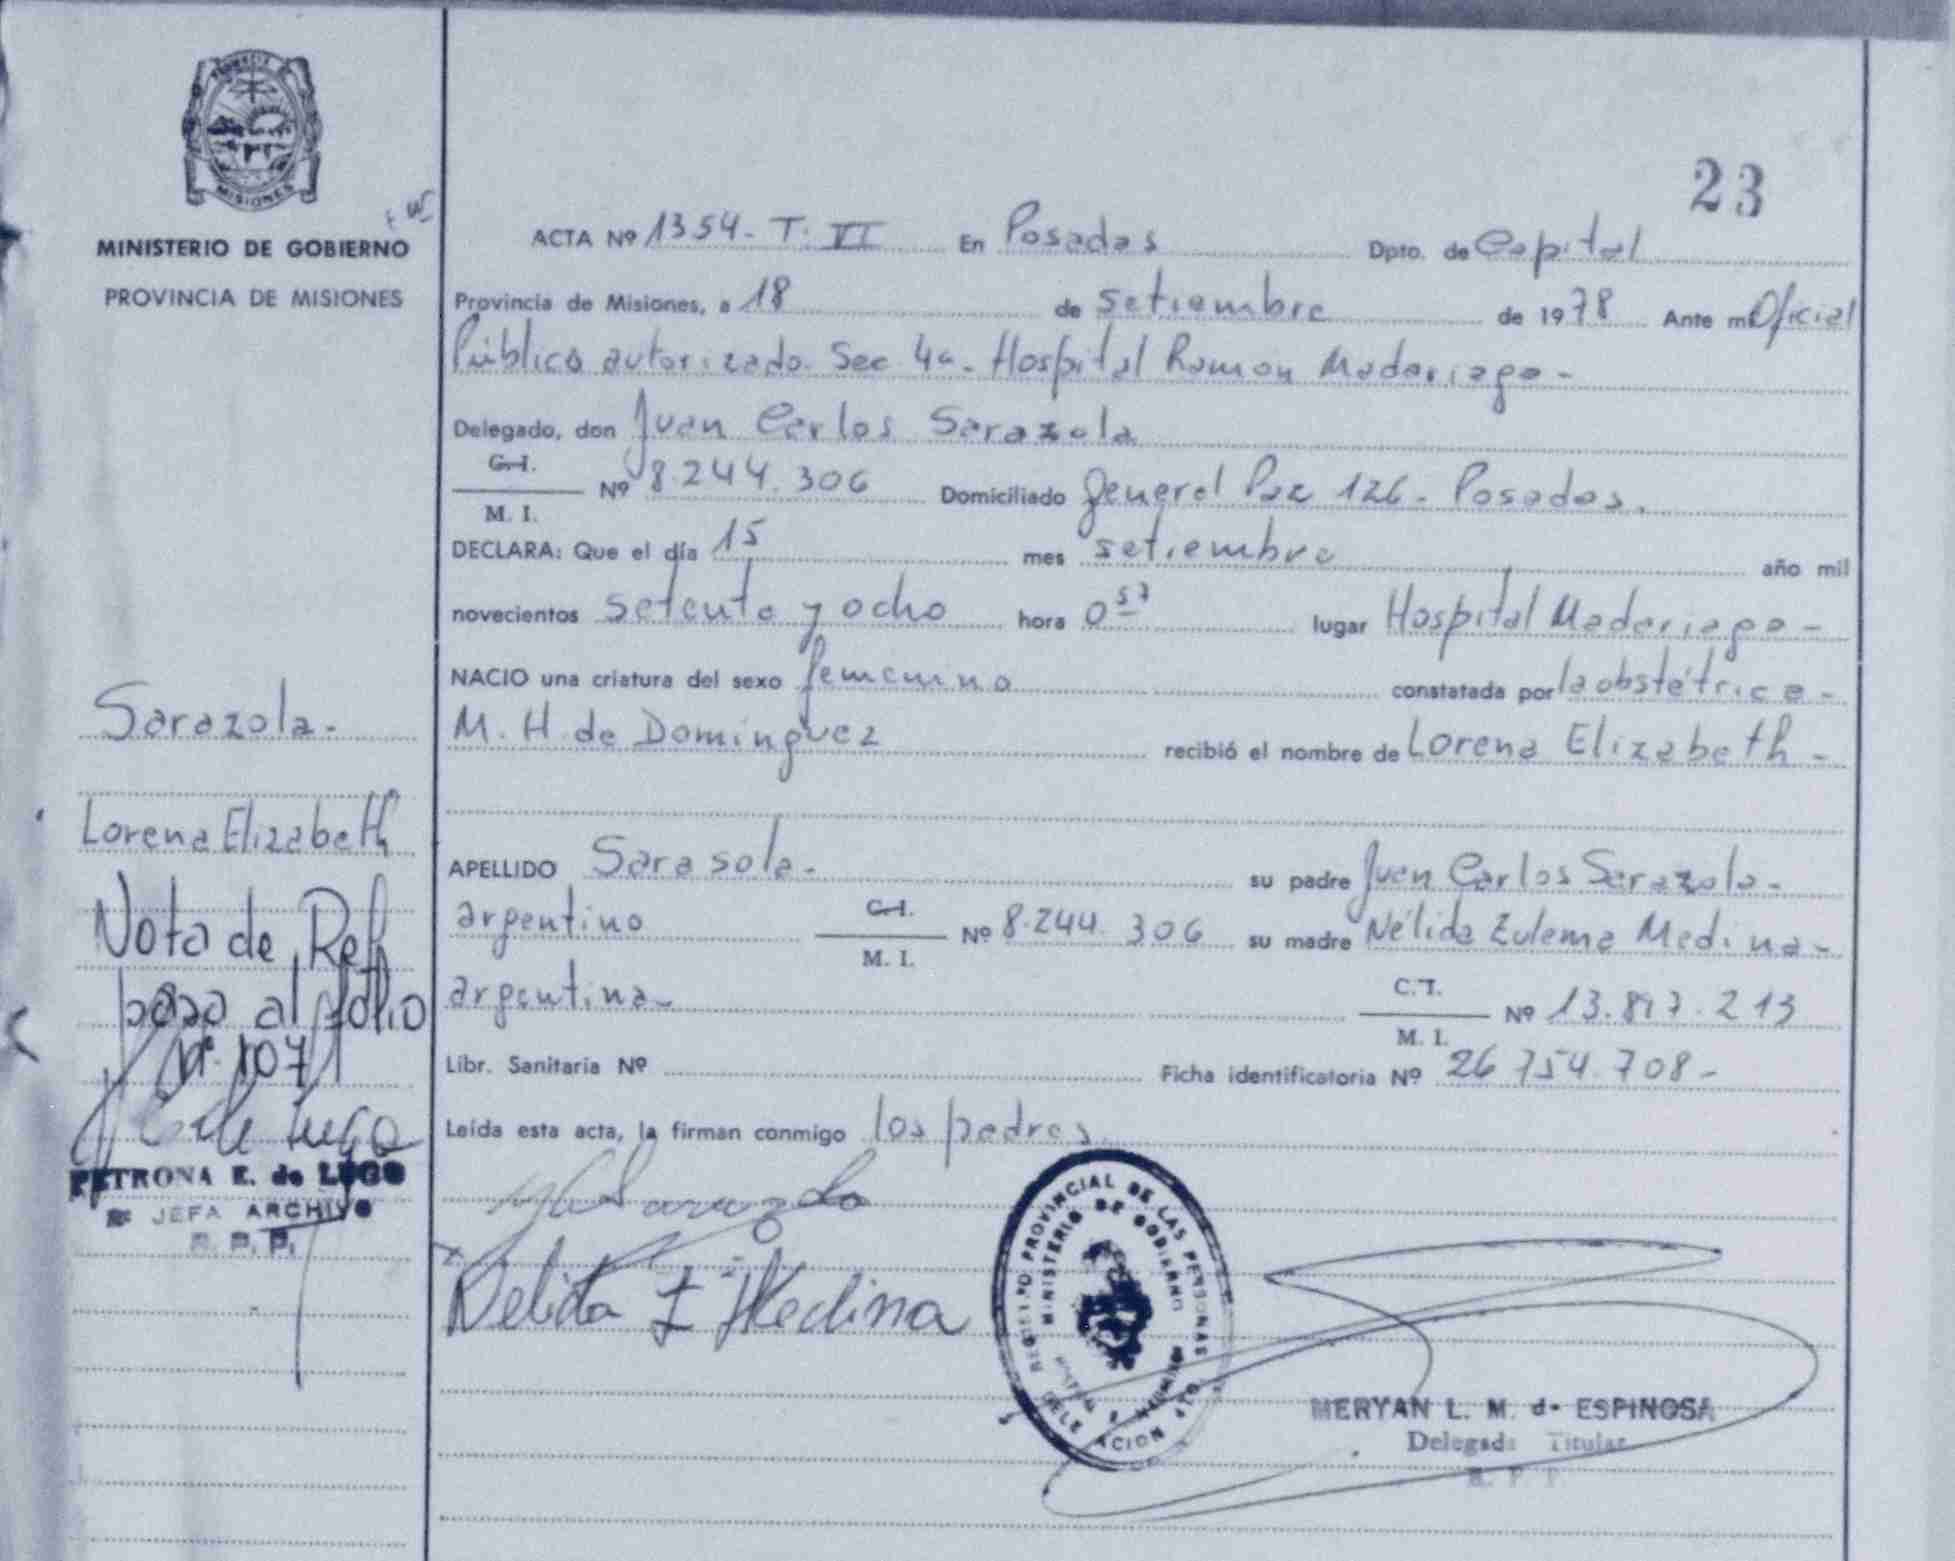 MISIONES
MINISTERIO DE GOBIERNO
PROVINCIA DE MISIONES
23
ACTA Nº 1354. T. VI En Posadas Dpto. de Capital
Provincia de Misiones, a 18 de setiembre de 1978 Ante mi Oficial
Público autorizado Sec 4a. Hospital Ramon Madariaga -
Delegado, don Juan Carlos Sarazola
C.I.
M. I.
Nº 8.244.306 Domiciliado General Paz 126 - Posadas.
DECLARA: Que el día 15 mes setiembre año mil
novecientos setenta y ocho hora 0 57 lugar Hospital Madariaga -
NACIO una criatura del sexo femenino constatada por la obstétrica -
M. H. de Dominguez recibió el nombre de Lorena Elizabeth -
APELLIDO Sarasola - su padre Juan Carlos Sarazola -
argentino C.I. M. I. Nº 8.244.306 su madre Nélida Zulema Medina -
argentina - C.I. M. I. Nº 13.897.213
Libr. Sanitaria Nº Ficha identificatoria Nº 26 754.708 -
Leída esta acta, la firman conmigo los padres
Sarazola -
Lorena Elizabeth
Nota de Ref
paso al folio
Nº 107
PETRONA E. de LUGO
JEFA ARCHIVO
R. P. P.
Nelida Z Medina
REGISTRO PROVINCIAL DE LAS PERSONAS
MINISTERIO DE GOBIERNO
DELEGACION
MERYAN L. M. de ESPINOSA
Delegada Titular
R. P. P.